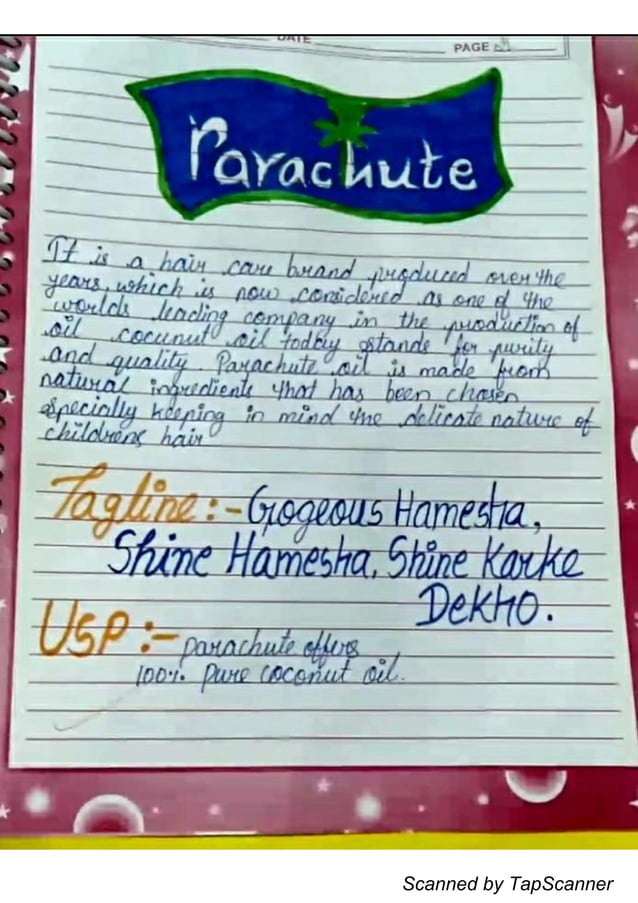 DATE
PAGE
Parachute
It is a hair care brand produced over the
years, which is now considered as one of the
worlds leading company in the production of
oil cocunut oil today stands for purity
and quality. Parachute oil is made from
natural ingredients that has been chosen
specially keeping in mind the delicate nature of
childrens hair
Tagline :- Gogeous Hamesha,
Shine Hamesha, Shine Karke
Dekho.
USP :- parachute offers
100% pure coconut oil.
Scanned by TapScanner